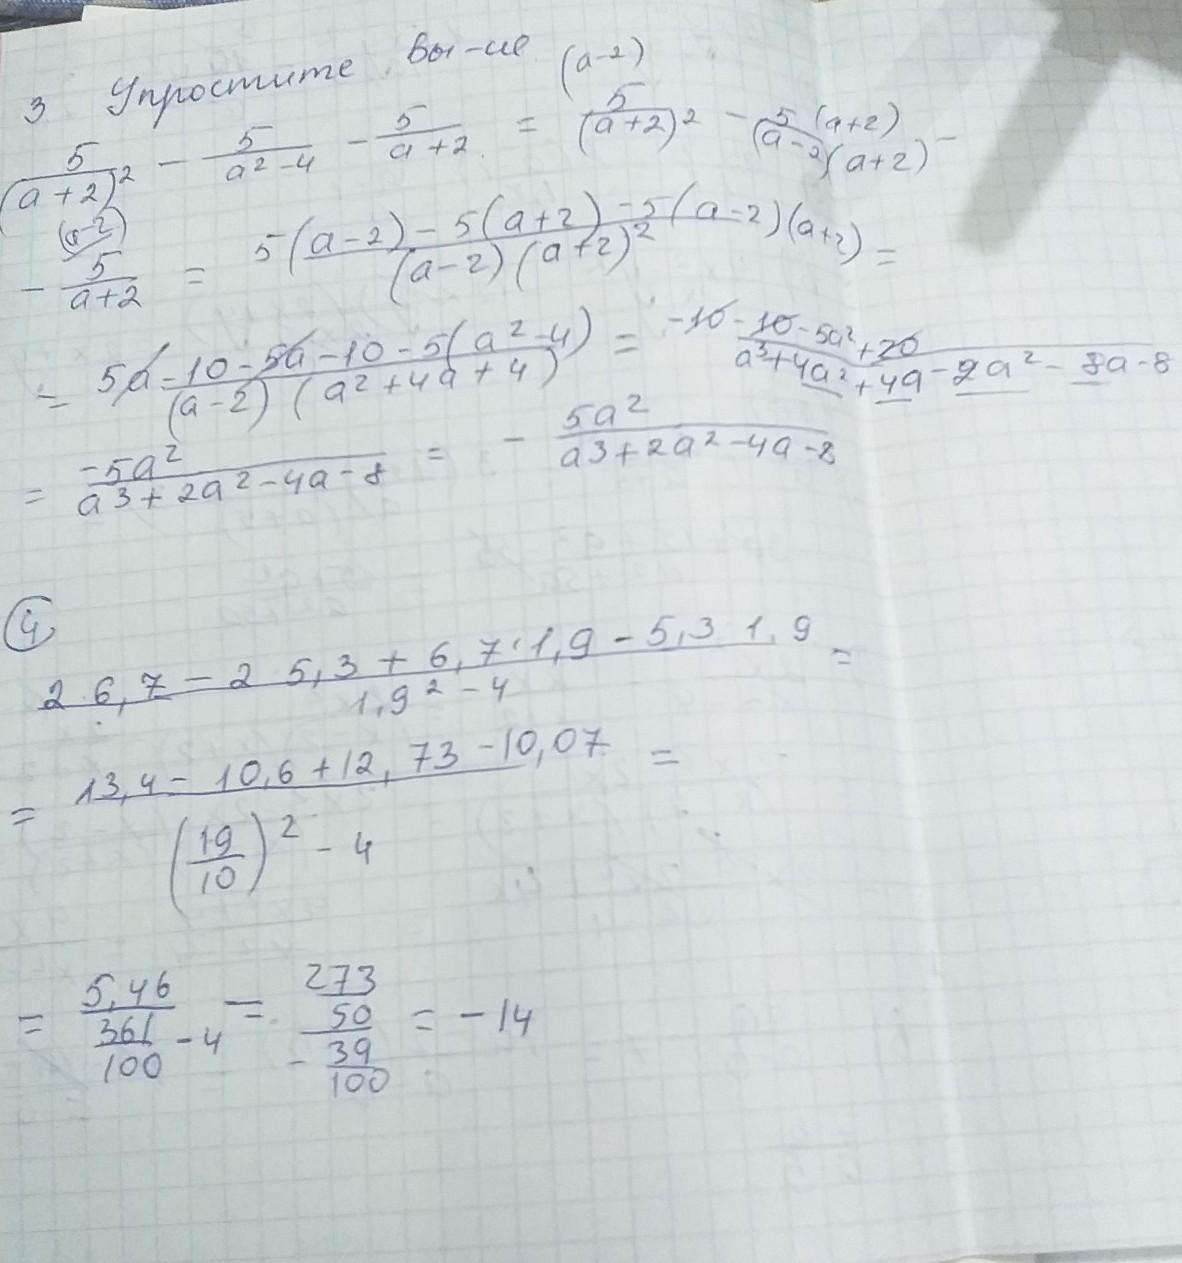 3 Упростите вы-ие
5/(a+2)² - 5/(a²-4) - 5/(a+2) = 5(a-2)/(a+2)² - 5(a+2)/((a-2)(a+2)) -
(a-2)
- 5/(a+2) = (5(a-2) - 5(a+2) - 5(a-2)(a+2))/((a-2)(a+2)²) =
= (5a-10-5a-10-5(a²-4))/((a-2)(a²+4a+4)) = (-10-10-5a²+20)/(a³+4a²+4a-2a²-8a-8)
= -5a²/(a³+2a²-4a-8) = - 5a²/(a³+2a²-4a-8)
4
(2·6,7 - 2 5,3 + 6,7·1,9 - 5,3 1,9)/(1,9²-4) =
= (13,4 - 10,6 + 12,73 - 10,07)/((19/10)² - 4) =
= 5,46/(361/100 - 4) = (273/50)/(-39/100) = -14